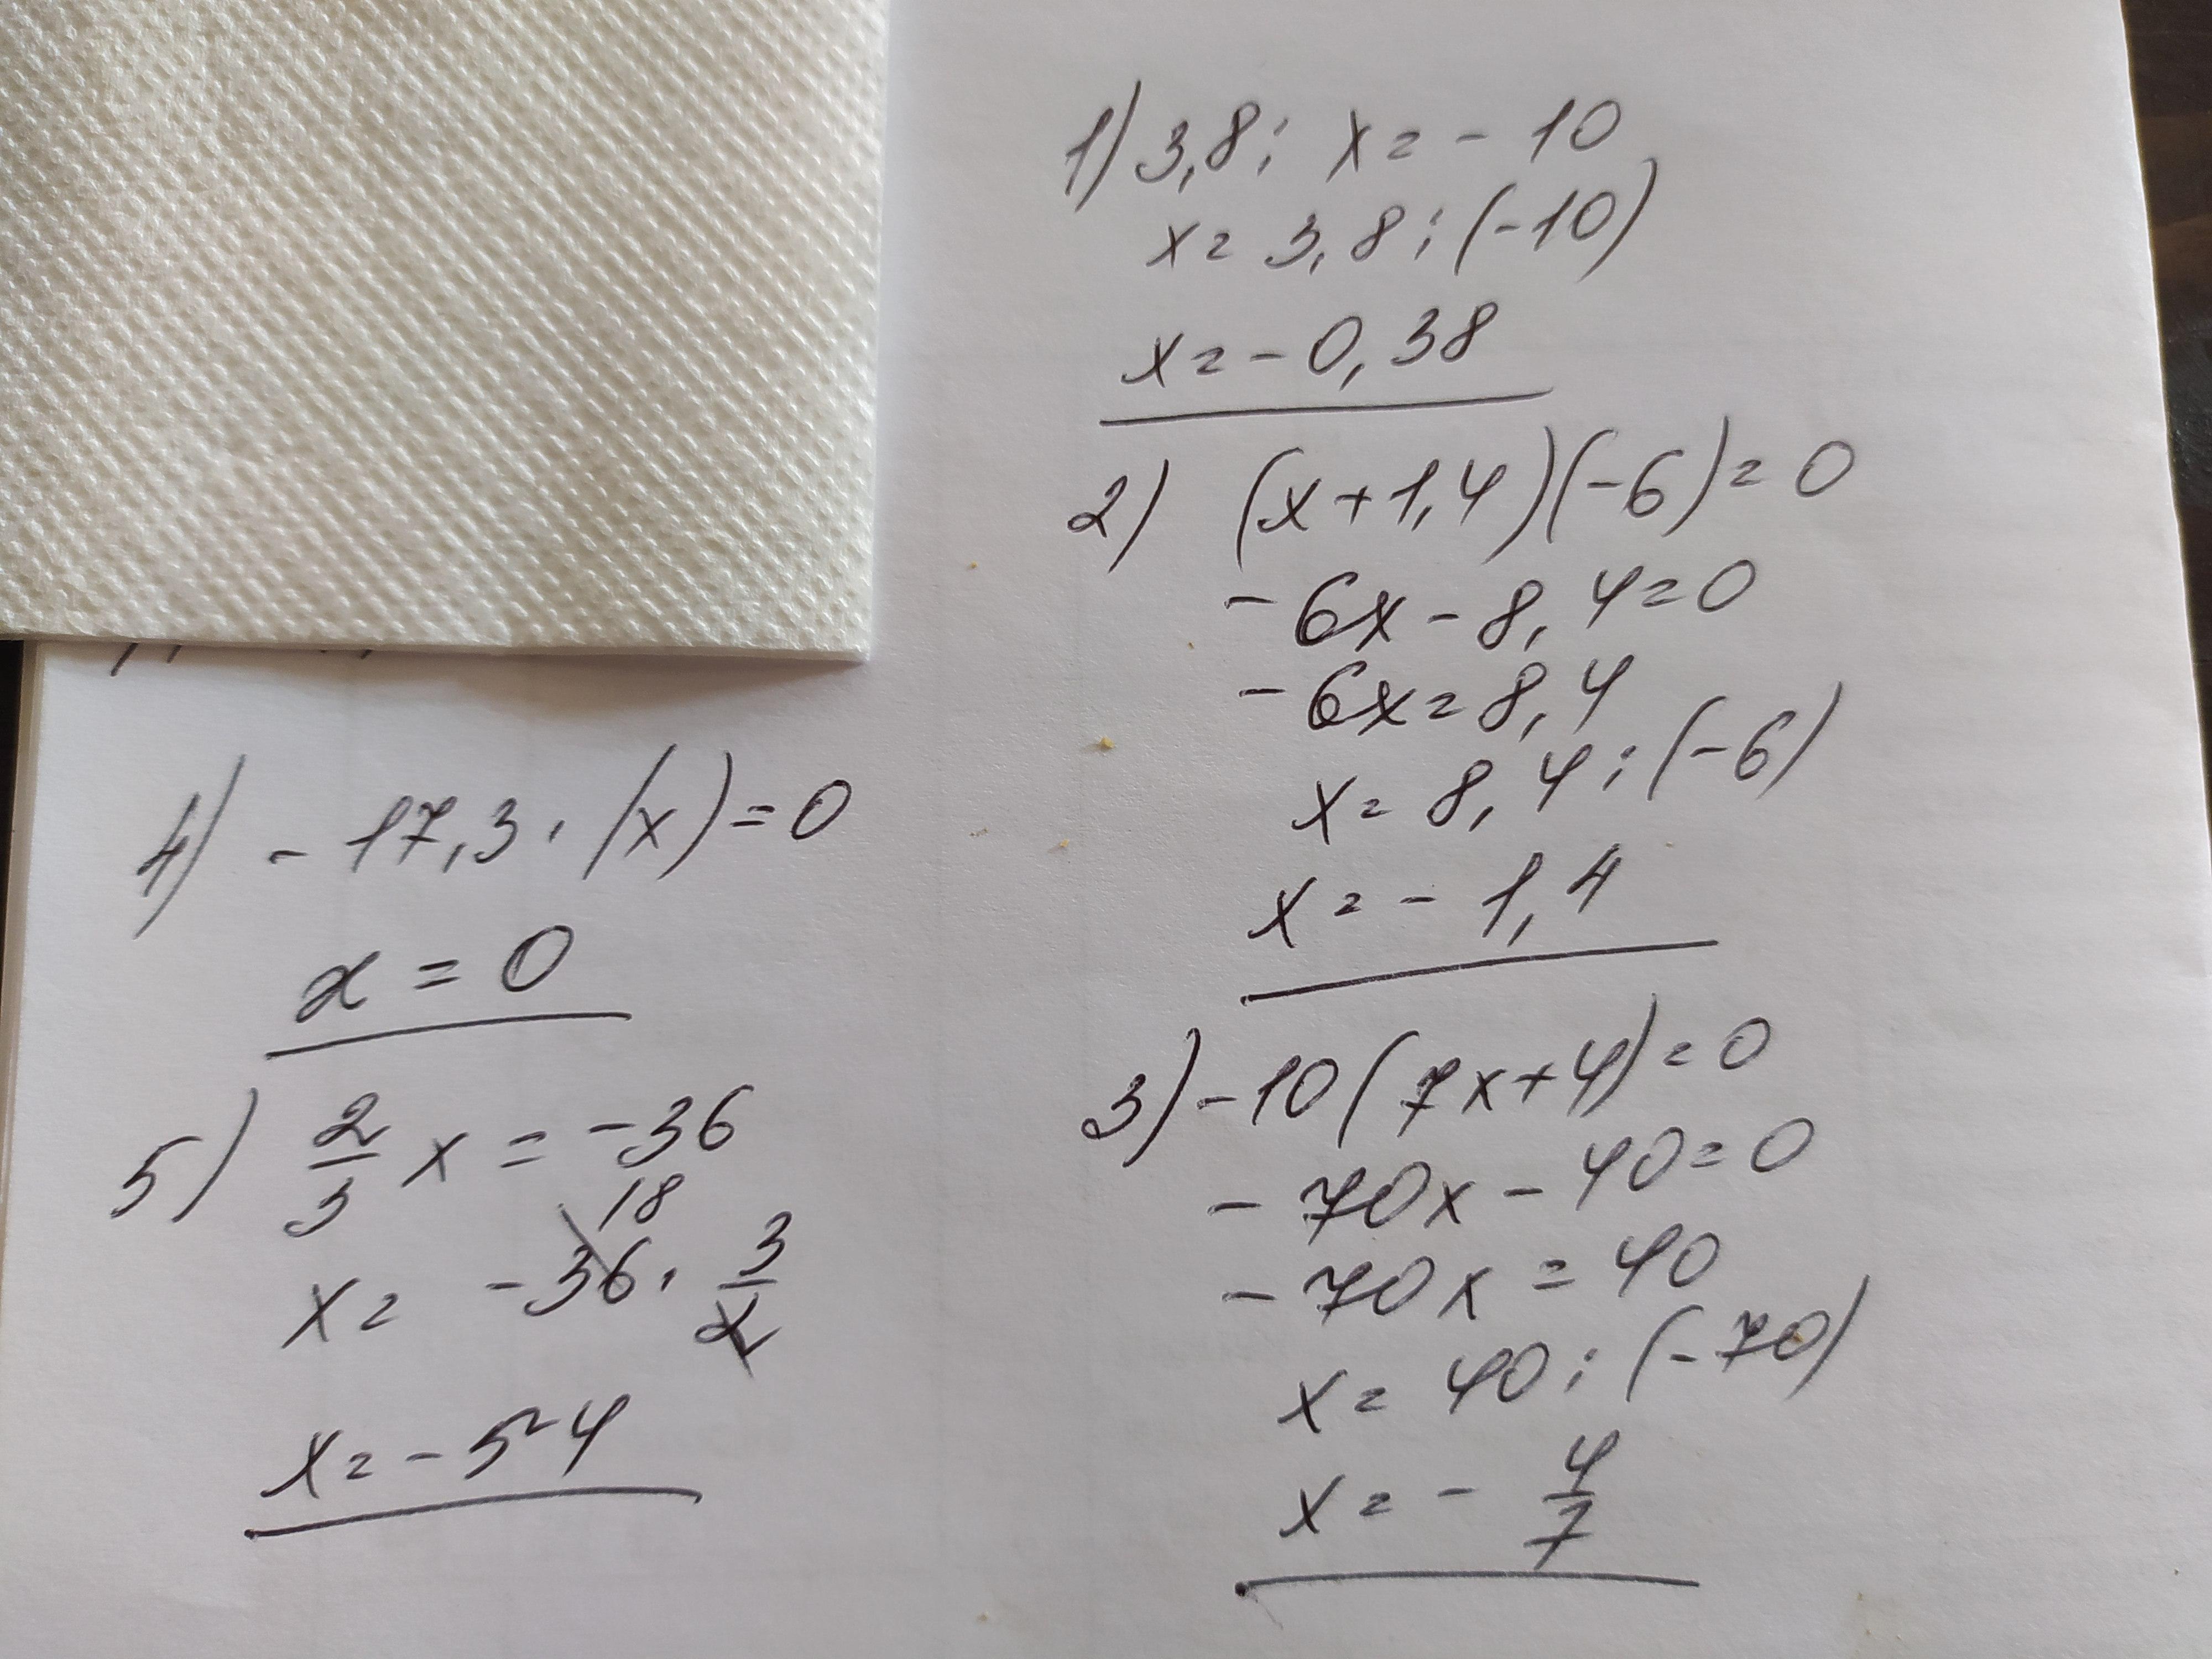 1) 3,8 : x = - 10
x = 3,8 : (-10)
x = - 0,38
2) (x + 1,4)(-6) = 0
- 6x - 8,4 = 0
- 6x = 8,4
x = 8,4 : (-6)
x = - 1,4
3) -10(7x+4) = 0
- 70x - 40 = 0
- 70x = 40
x = 40 : (-70)
x = - 4/7
4) - 17,3 · (x) = 0
x = 0
5) 2/3 x = -36
18
x = -36 · 3/2
x = - 54